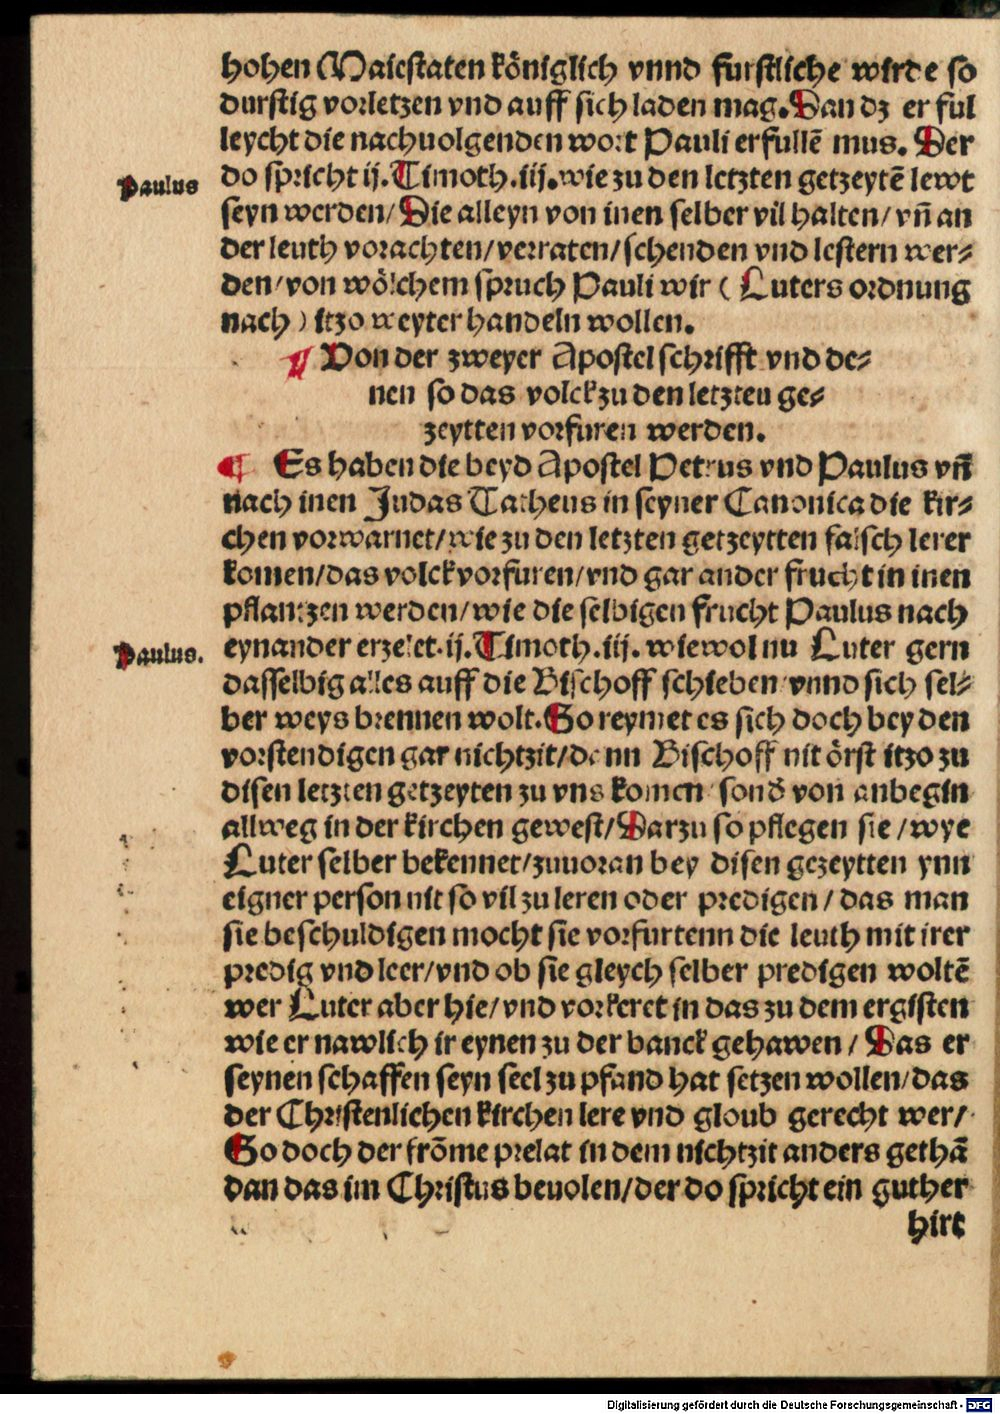 hohen Maiestaten königlich vnnd furstliche wirde so
durstig vorletzen vnd auff sich laden mag. Dan dz er ful
leycht die nachuolgenden wort Pauli erfullē mus. Der
Paulus
do spricht ij. Timoth. iij. wie zu den letzten getzeytē lewt
seyn werden/ Die alleyn von inen selber vil halten/ vn̄ an
der leuth vorachten/ verraten/ schenden vnd lestern wer⸗
den/ von wölchem spruch Pauli wir ( Luters ordnung
nach ) itzo weyter handeln wollen.
¶ Von der zweyer Apostel schrifft vnd de⸗
nen so das volck zu den letzten ge⸗
zeytten vorfuren werden.
¶ Es haben die beyd Apostel Petrus vnd Paulus vn̄
nach inen Judas Tatheus in seyner Canonica die kir⸗
chen vorwarnet/ wie zu den letzten getzeytten falsch lerer
komen/ das volck vorfuren/ vnd gar ander frucht in inen
pflantzen werden/ wie die selbigen frucht Paulus nach
Paulus.
eynander erzelet. ij. Timoth. iij. wiewol nu Luter gern
dasselbig alles auff die Bischoff schieben vnnd sich sel⸗
ber weys brennen wolt. So reymet es sich doch bey den
vorstendigen gar nichtzit/ denn Bischoff nit örst itzo zu
disen letzten getzeyten zu vns komen sond̄ von anbegin
allweg in der kirchen gewest/ Darzu so pflegen sie / wye
Luter selber bekennet/ zuuoran bey disen gezeytten ynn
eigner person nit so vil zu leren oder predigen / das man
sie beschuldigen mocht sie vorfurtenn die leuth mit irer
predig vnd leer/ vnd ob sie gleych selber predigen woltē
wer Luter aber hie/ vnd vorkeret in das zu dem ergisten
wie er nawlich ir eynen zu der banck gehawen / Das er
seynen schaffen seyn seel zu pfand hat setzen wollen/ das
der Christenlichen kirchen lere vnd gloub gerecht wer/
So doch der frōme prelat in dem nichtzit anders gethā
dan das im Christus beuolen/ der do spricht ein guther
hirt
Digitalisierung gefördert durch die Deutsche Forschungsgemeinschaft - DFG